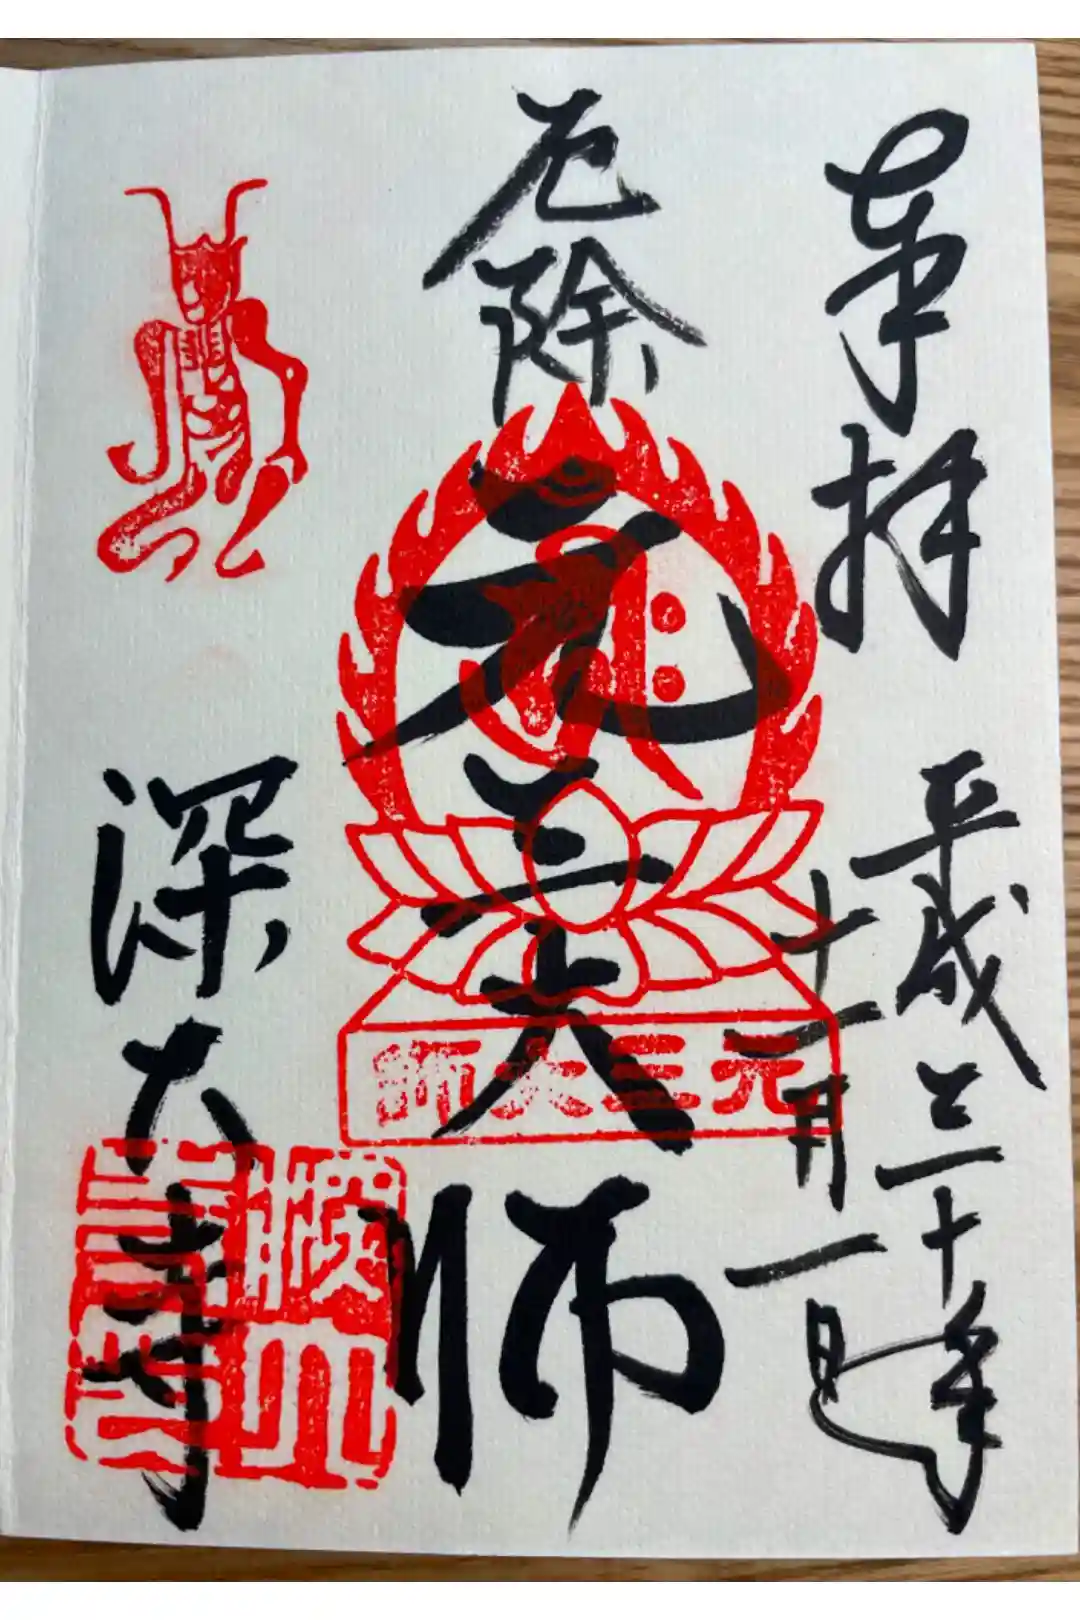 奉拝
平成三十年
十一月一日
厄除
元三大師
元三大師
深大寺